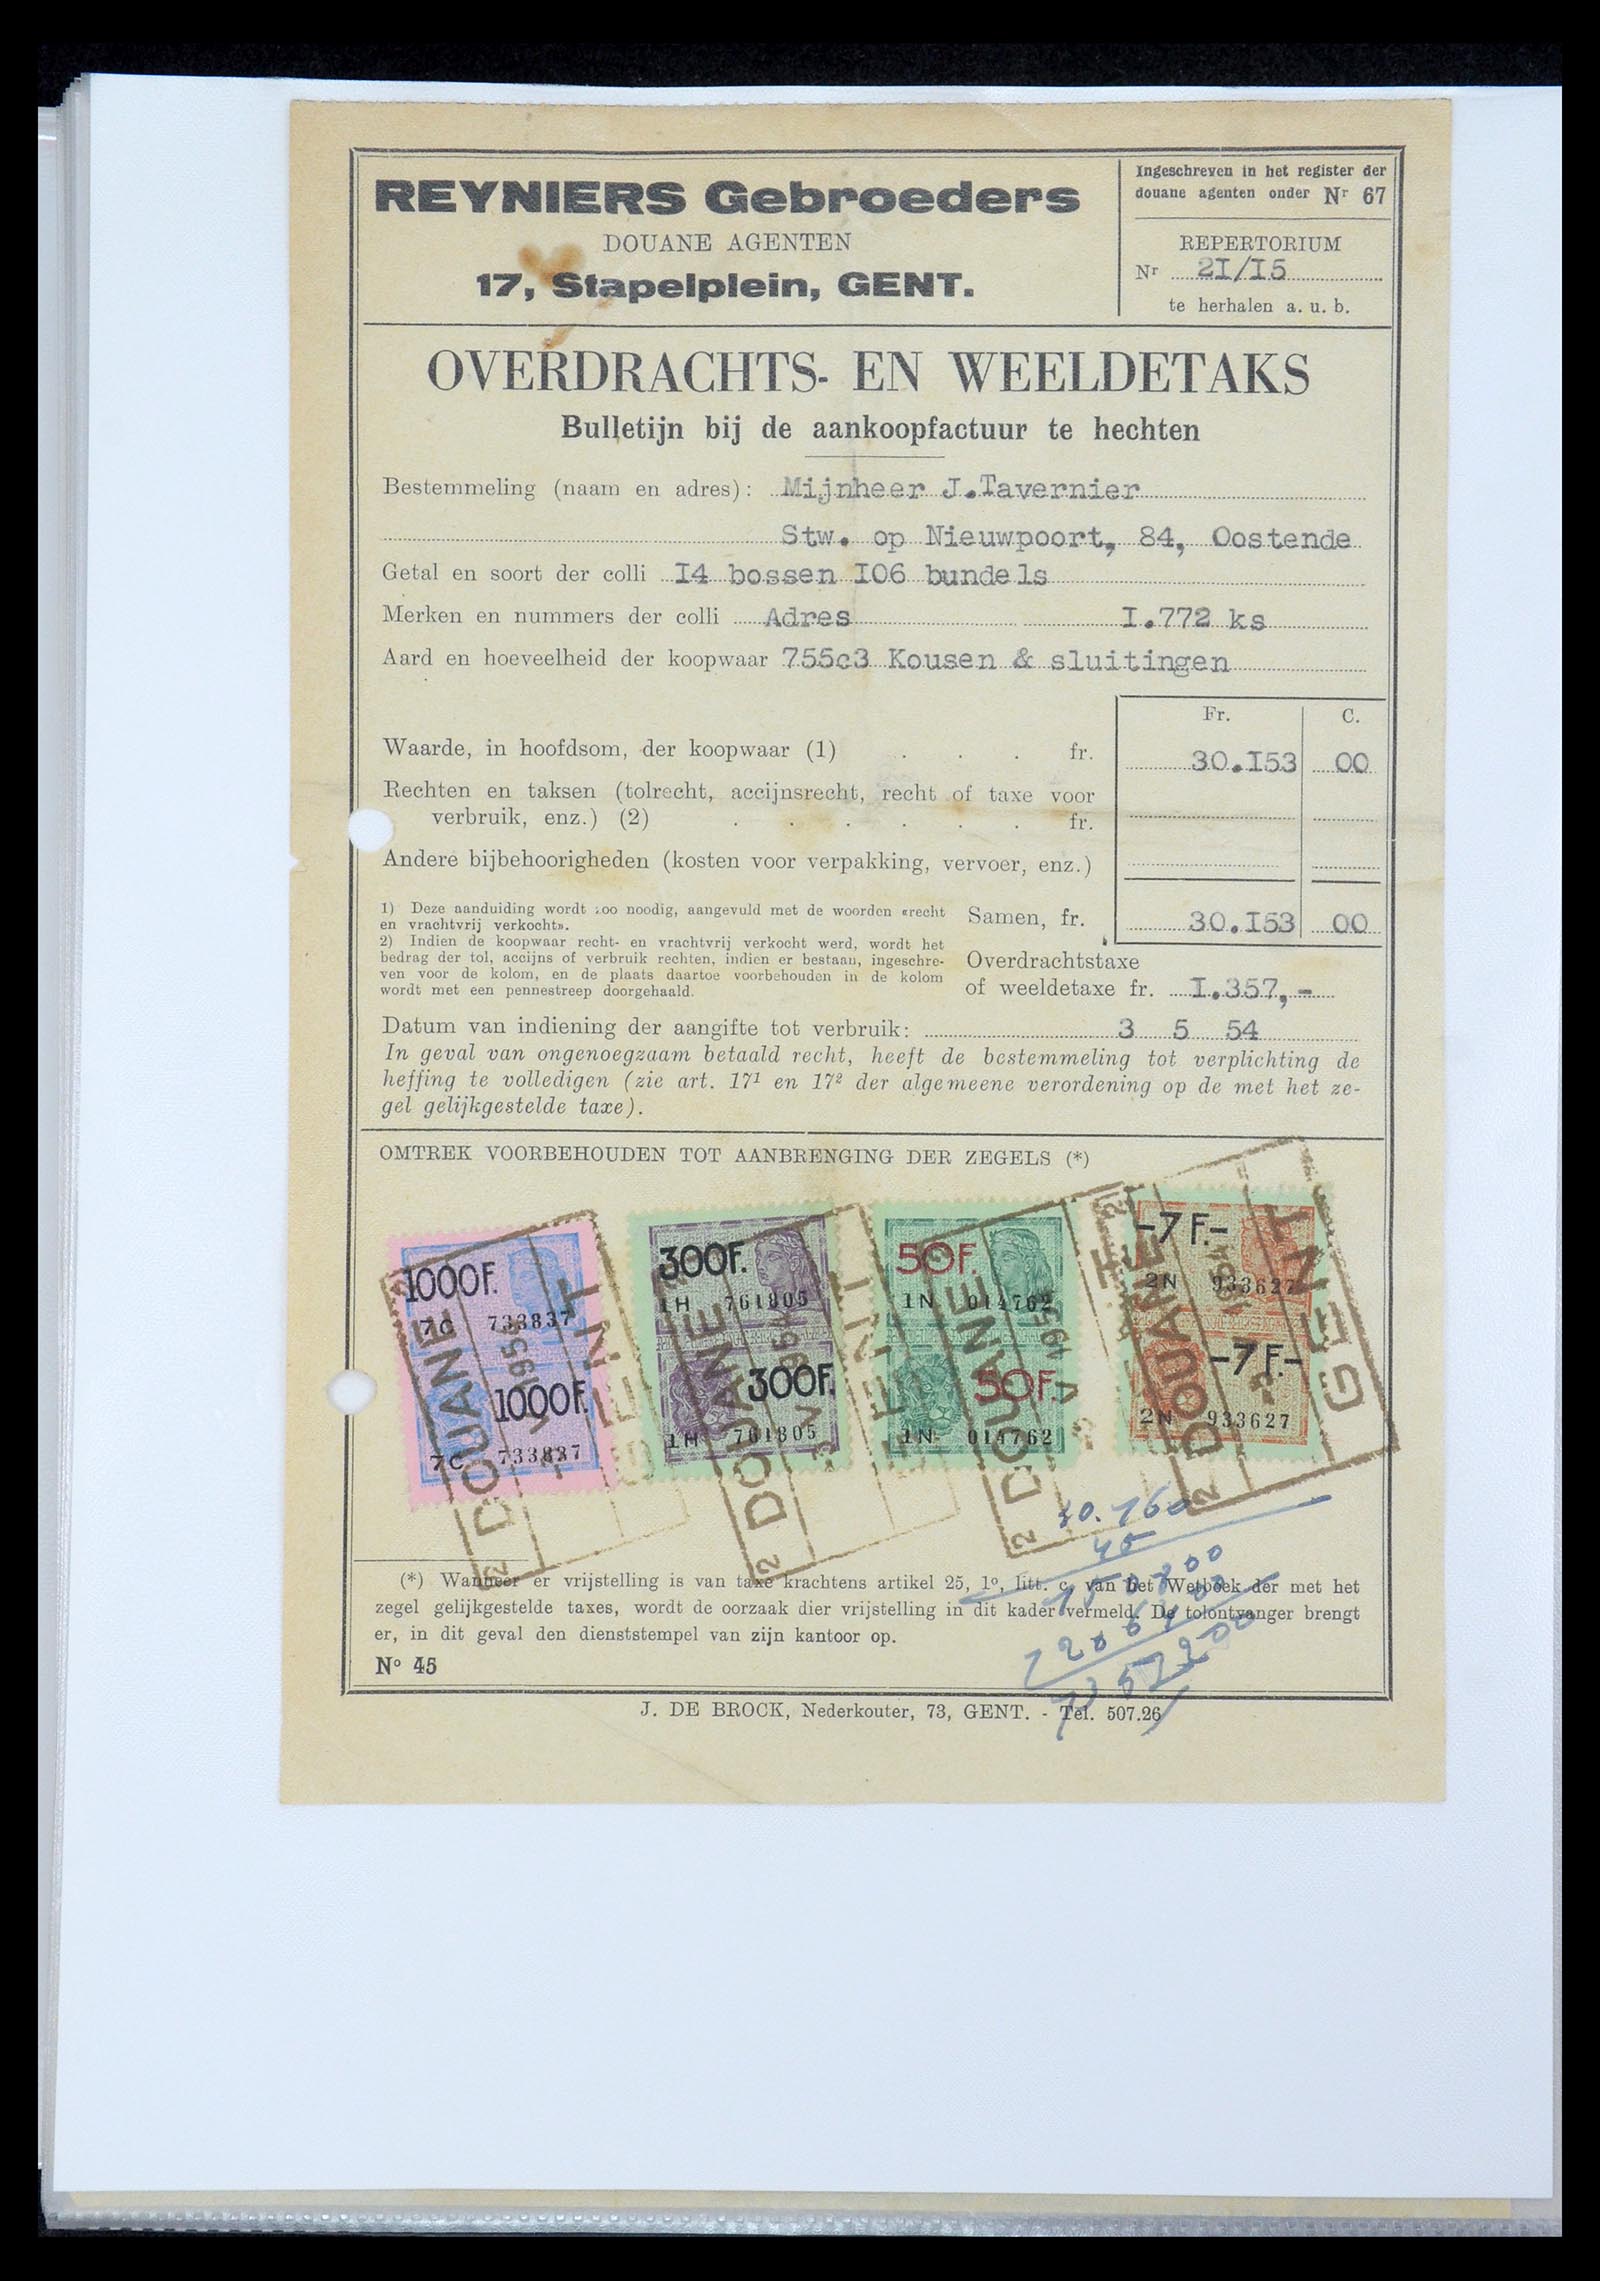 REYNIERS Gebroeders
DOUANE AGENTEN
17, Stapelplein, GENT.
Ingeschreven in het register der
douane agenten onder Nr 67
REPERTORIUM
Nr 2I/I5
te herhalen a. u. b.
OVERDRACHTS- EN WEELDETAKS
Bulletijn bij de aankoopfactuur te hechten
Bestemmeling (naam en adres): Mijnheer J.Tavernier
Stw. op Nieuwpoort, 84, Oostende
Getal en soort der colli I4 bossen I06 bundels
Merken en nummers der colli Adres I.772 ks
Aard en hoeveelheid der koopwaar 755c3 Kousen & sluitingen
Fr. C.
Waarde, in hoofdsom, der koopwaar (1) . . . fr. 30.I53 00
Rechten en taksen (tolrecht, accijnsrecht, recht of taxe voor
verbruik, enz.) (2) . . . . . . fr.
Andere bijbehoorigheden (kosten voor verpakking, vervoer, enz.)
1) Deze aanduiding wordt zoo noodig, aangevuld met de woorden «recht
en vrachtvrij verkocht».
2) Indien de koopwaar recht- en vrachtvrij verkocht werd, wordt het
bedrag der tol, accijns of verbruik rechten, indien er bestaan, ingeschre-
ven voor de kolom, en de plaats daartoe voorbehouden in de kolom
wordt met een pennestreep doorgehaald.
Samen, fr. 30.I53 00
Overdrachtstaxe
of weeldetaxe fr. I.357,-
Datum van indiening der aangifte tot verbruik: 3 5 54
In geval van ongenoegzaam betaald recht, heeft de bestemmeling tot verplichting de
heffing te volledigen (zie art. 17¹ en 17² der algemeene verordening op de met het ze-
gel gelijkgestelde taxe).
OMTREK VOORBEHOUDEN TOT AANBRENGING DER ZEGELS (*)
1000F.
7C 733837
1000F.
7C 733837
300F.
1H 761805
300F.
1H 761805
50F.
1N 014762
50F.
1N 014762
-7 F.-
2N 933627
-7 F.-
2N 933627
2 DOUANE 2
GENT
2 DOUANE
GENT
2 DOUANE 2
GENT
2 DOUANE
GENT
30.160
45
(*) Wanneer er vrijstelling is van taxe krachtens artikel 25, 1º, litt. c, van het Wetboek der met het
zegel gelijkgestelde taxes, wordt de oorzaak dier vrijstelling in dit kader vermeld. De tolontvanger brengt
er, in dit geval den dienststempel van zijn kantoor op.
Nº 45
J. DE BROCK, Nederkouter, 73, GENT. - Tel. 507.26